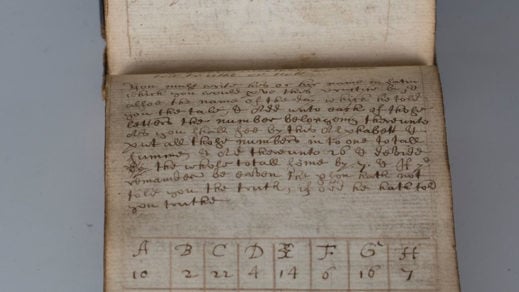 You must write his or her name in latin
which you would give this verdict
allso the name of the day which he told
you the tale, & Add unto each of those
letters the number belonging thereunto
As you shall see by this Alphabett &
put all those numbers in to one totall
summe, & Ad thereunto 26 & devide
the whole totall some by 7. & If ye
remainder be eaven the prson hath not
told you the truth, if odd he hath told
you truthe
A B C D E F G H
10 2 22 4 14 6 16 7